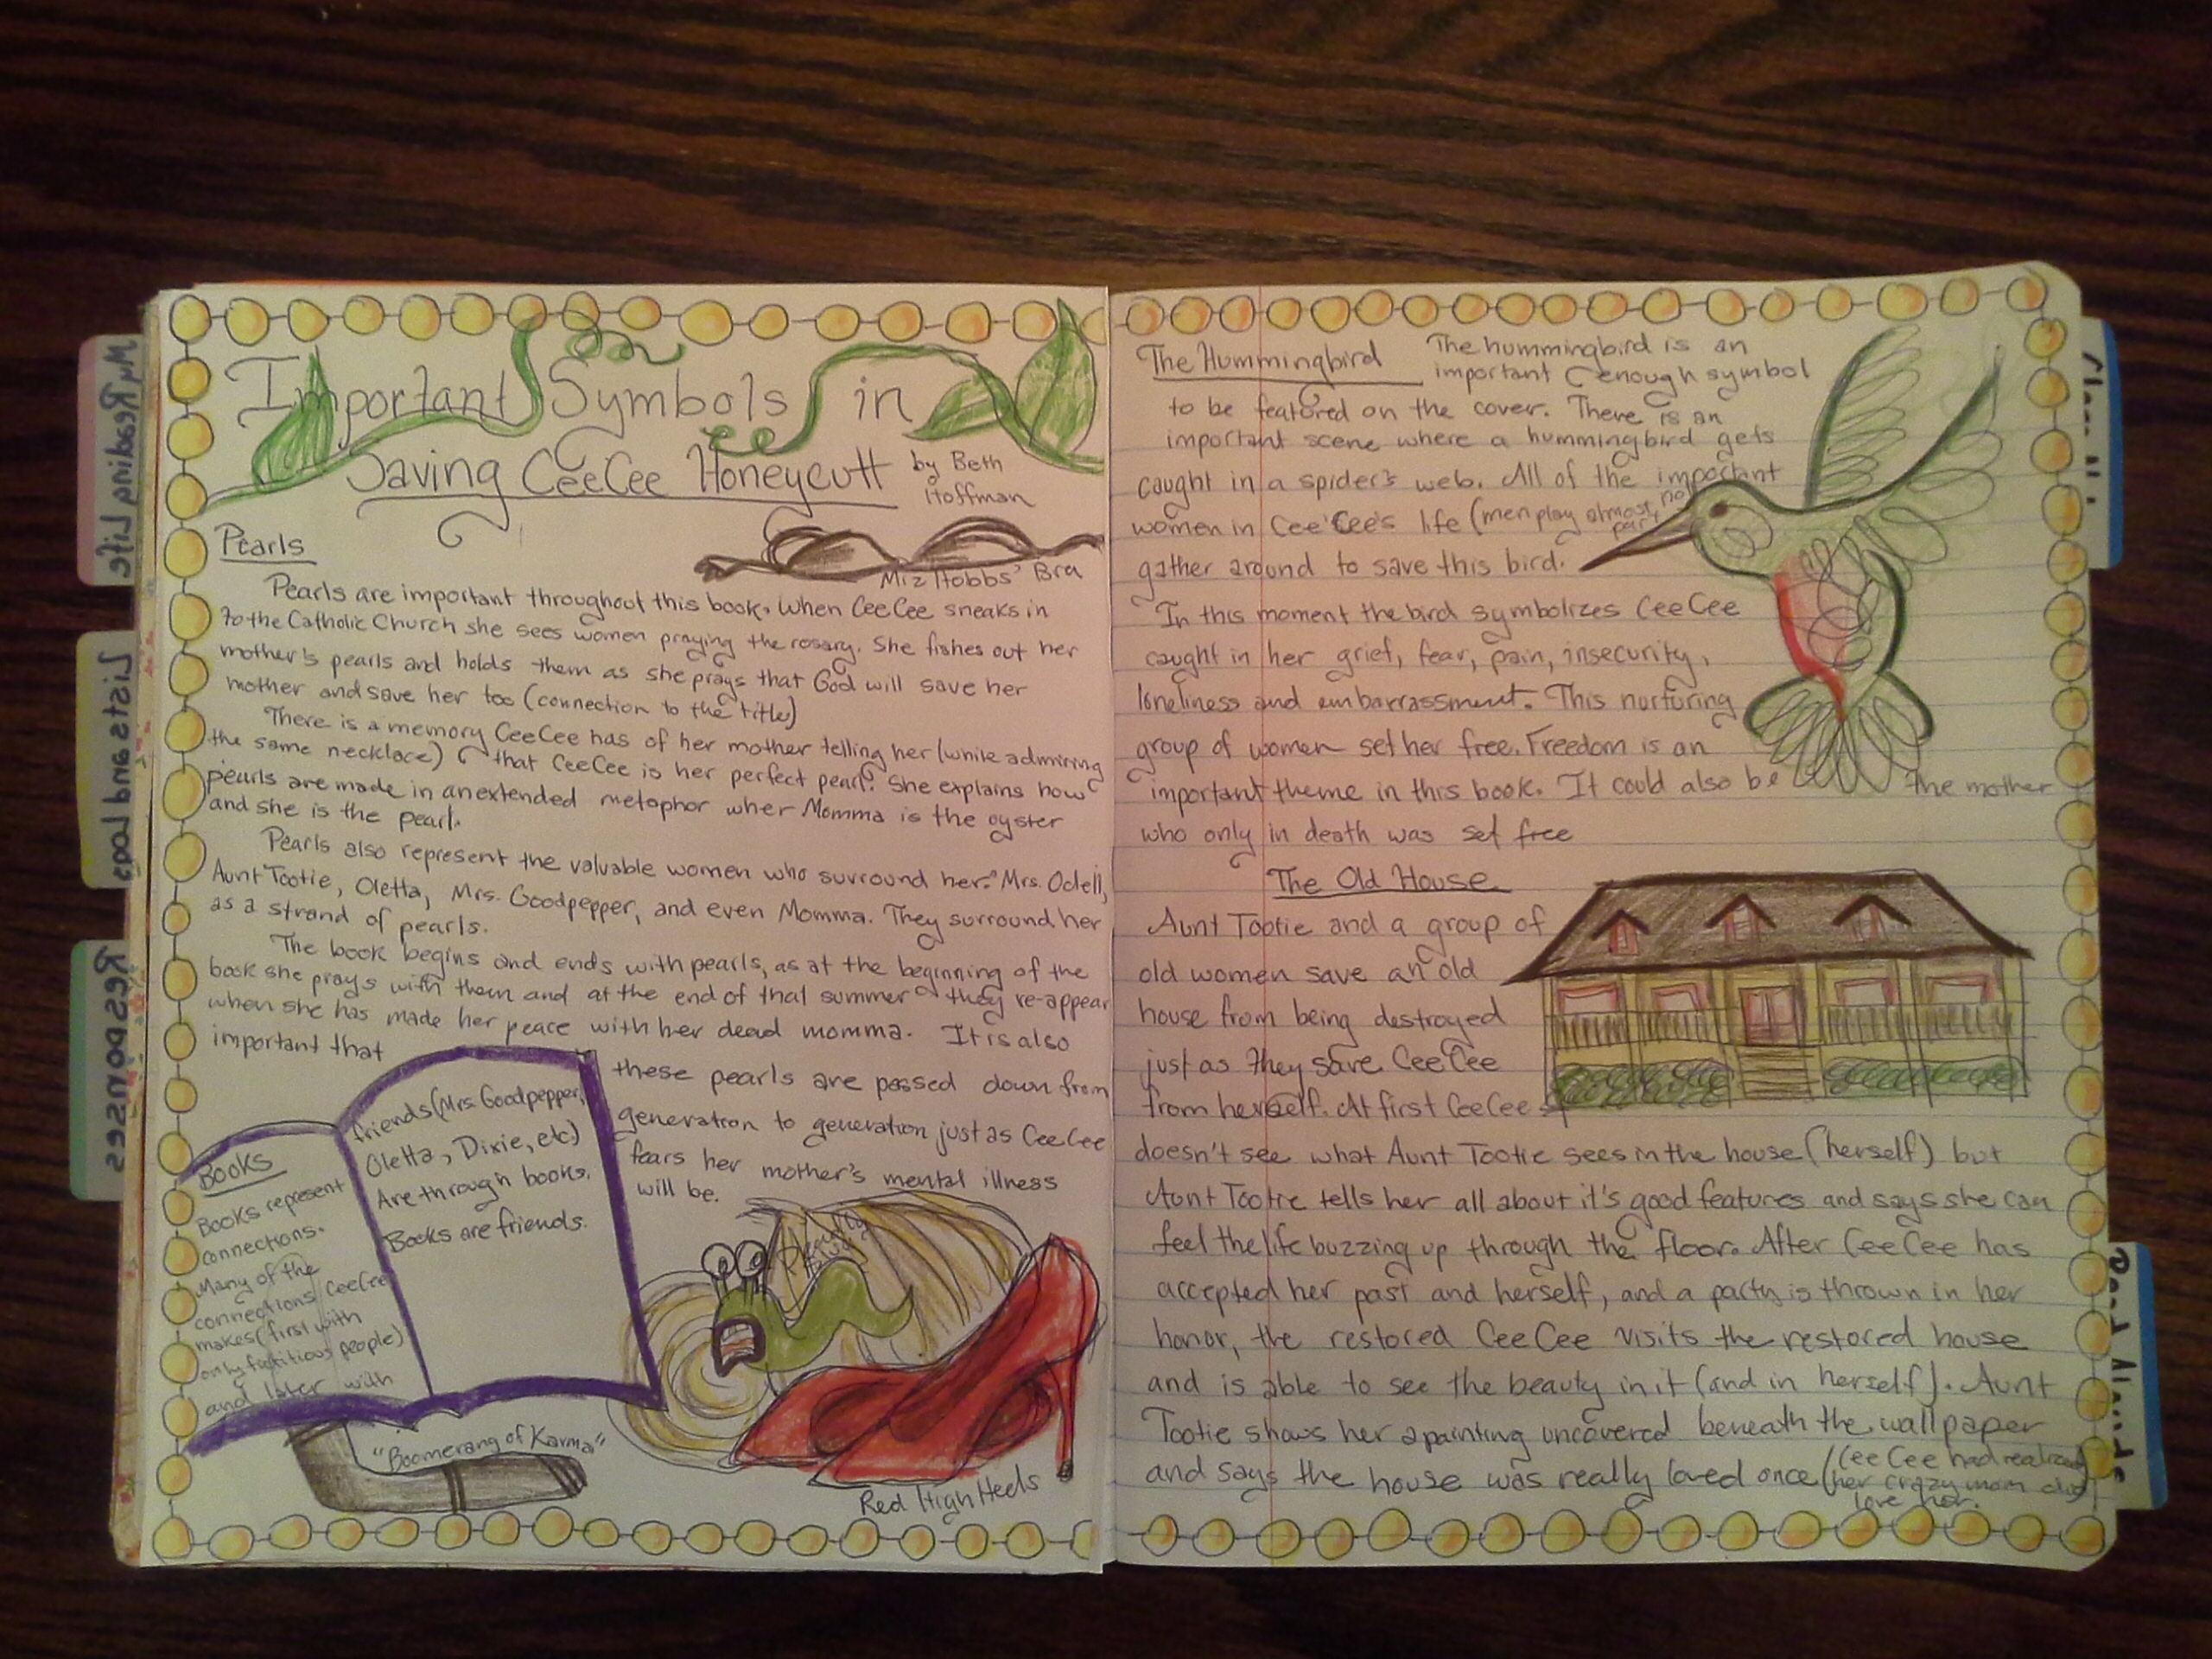 Important Symbols in
Saving CeeCee Honeycutt
by Beth
Hoffman
Pearls
Miz Hobbs' Bra
Pearls are important throughout this book. When CeeCee sneaks in
to the Catholic Church she sees women praying the rosary. She fishes out her
mother's pearls and holds them as she prays that God will save her
mother and save her too (connection to the title)
There is a memory CeeCee has of her mother telling her (while admiring
the same necklace) that CeeCee is her perfect pearl. She explains how
pearls are made in an extended metaphor wher Momma is the oyster
and she is the pearl.
Pearls also represent the valuable women who surround her. Mrs. Odell,
Aunt Tootie, Oletta, Mrs. Goodpepper, and even Momma. They surround her
as a strand of pearls.
The book begins and ends with pearls, as at the beginning of the
book she prays with them and at the end of that summer they re-appear
when she has made her peace with her dead momma. It is also
important that
these pearls are passed down from
generation to generation just as CeeCee
fears her mother's mental illness
will be.
Books
Books represent
connections.
Many of the
connections CeeCee
makes (first with
only fictitious people)
and later with
friends (Mrs. Goodpepper,
Oletta, Dixie, etc)
Are through books.
Books are friends.
"Boomerang of Karma"
Red High Heels
The Hummingbird
The hummingbird is an
important enough symbol
to be featured on the cover. There is an
important scene where a hummingbird gets
caught in a spider's web. All of the important
women in CeeCee's life (men play almost no
part)
gather around to save this bird.
In this moment the bird symbolizes CeeCee
caught in her grief, fear, pain, insecurity,
loneliness and embarrassment. This nurturing
group of women set her free. Freedom is an
important theme in this book. It could also be the mother
who only in death was set free
The Old House
Aunt Tootie and a group of
old women save an old
house from being destroyed
just as they save CeeCee
from herself. At first CeeCee
doesn't see what Aunt Tootie sees in the house (herself) but
Aunt Tootie tells her all about it's good features and says she can
feel the life buzzing up through the floor. After CeeCee has
accepted her past and herself, and a party is thrown in her
honor, the restored CeeCee visits the restored house
and is able to see the beauty in it (and in herself). Aunt
Tootie shows her a painting uncovered beneath the wallpaper
and says the house was really loved once (CeeCee had realized
her crazy mom did
love her.
My Reading Life
Lists and Logs
Responses